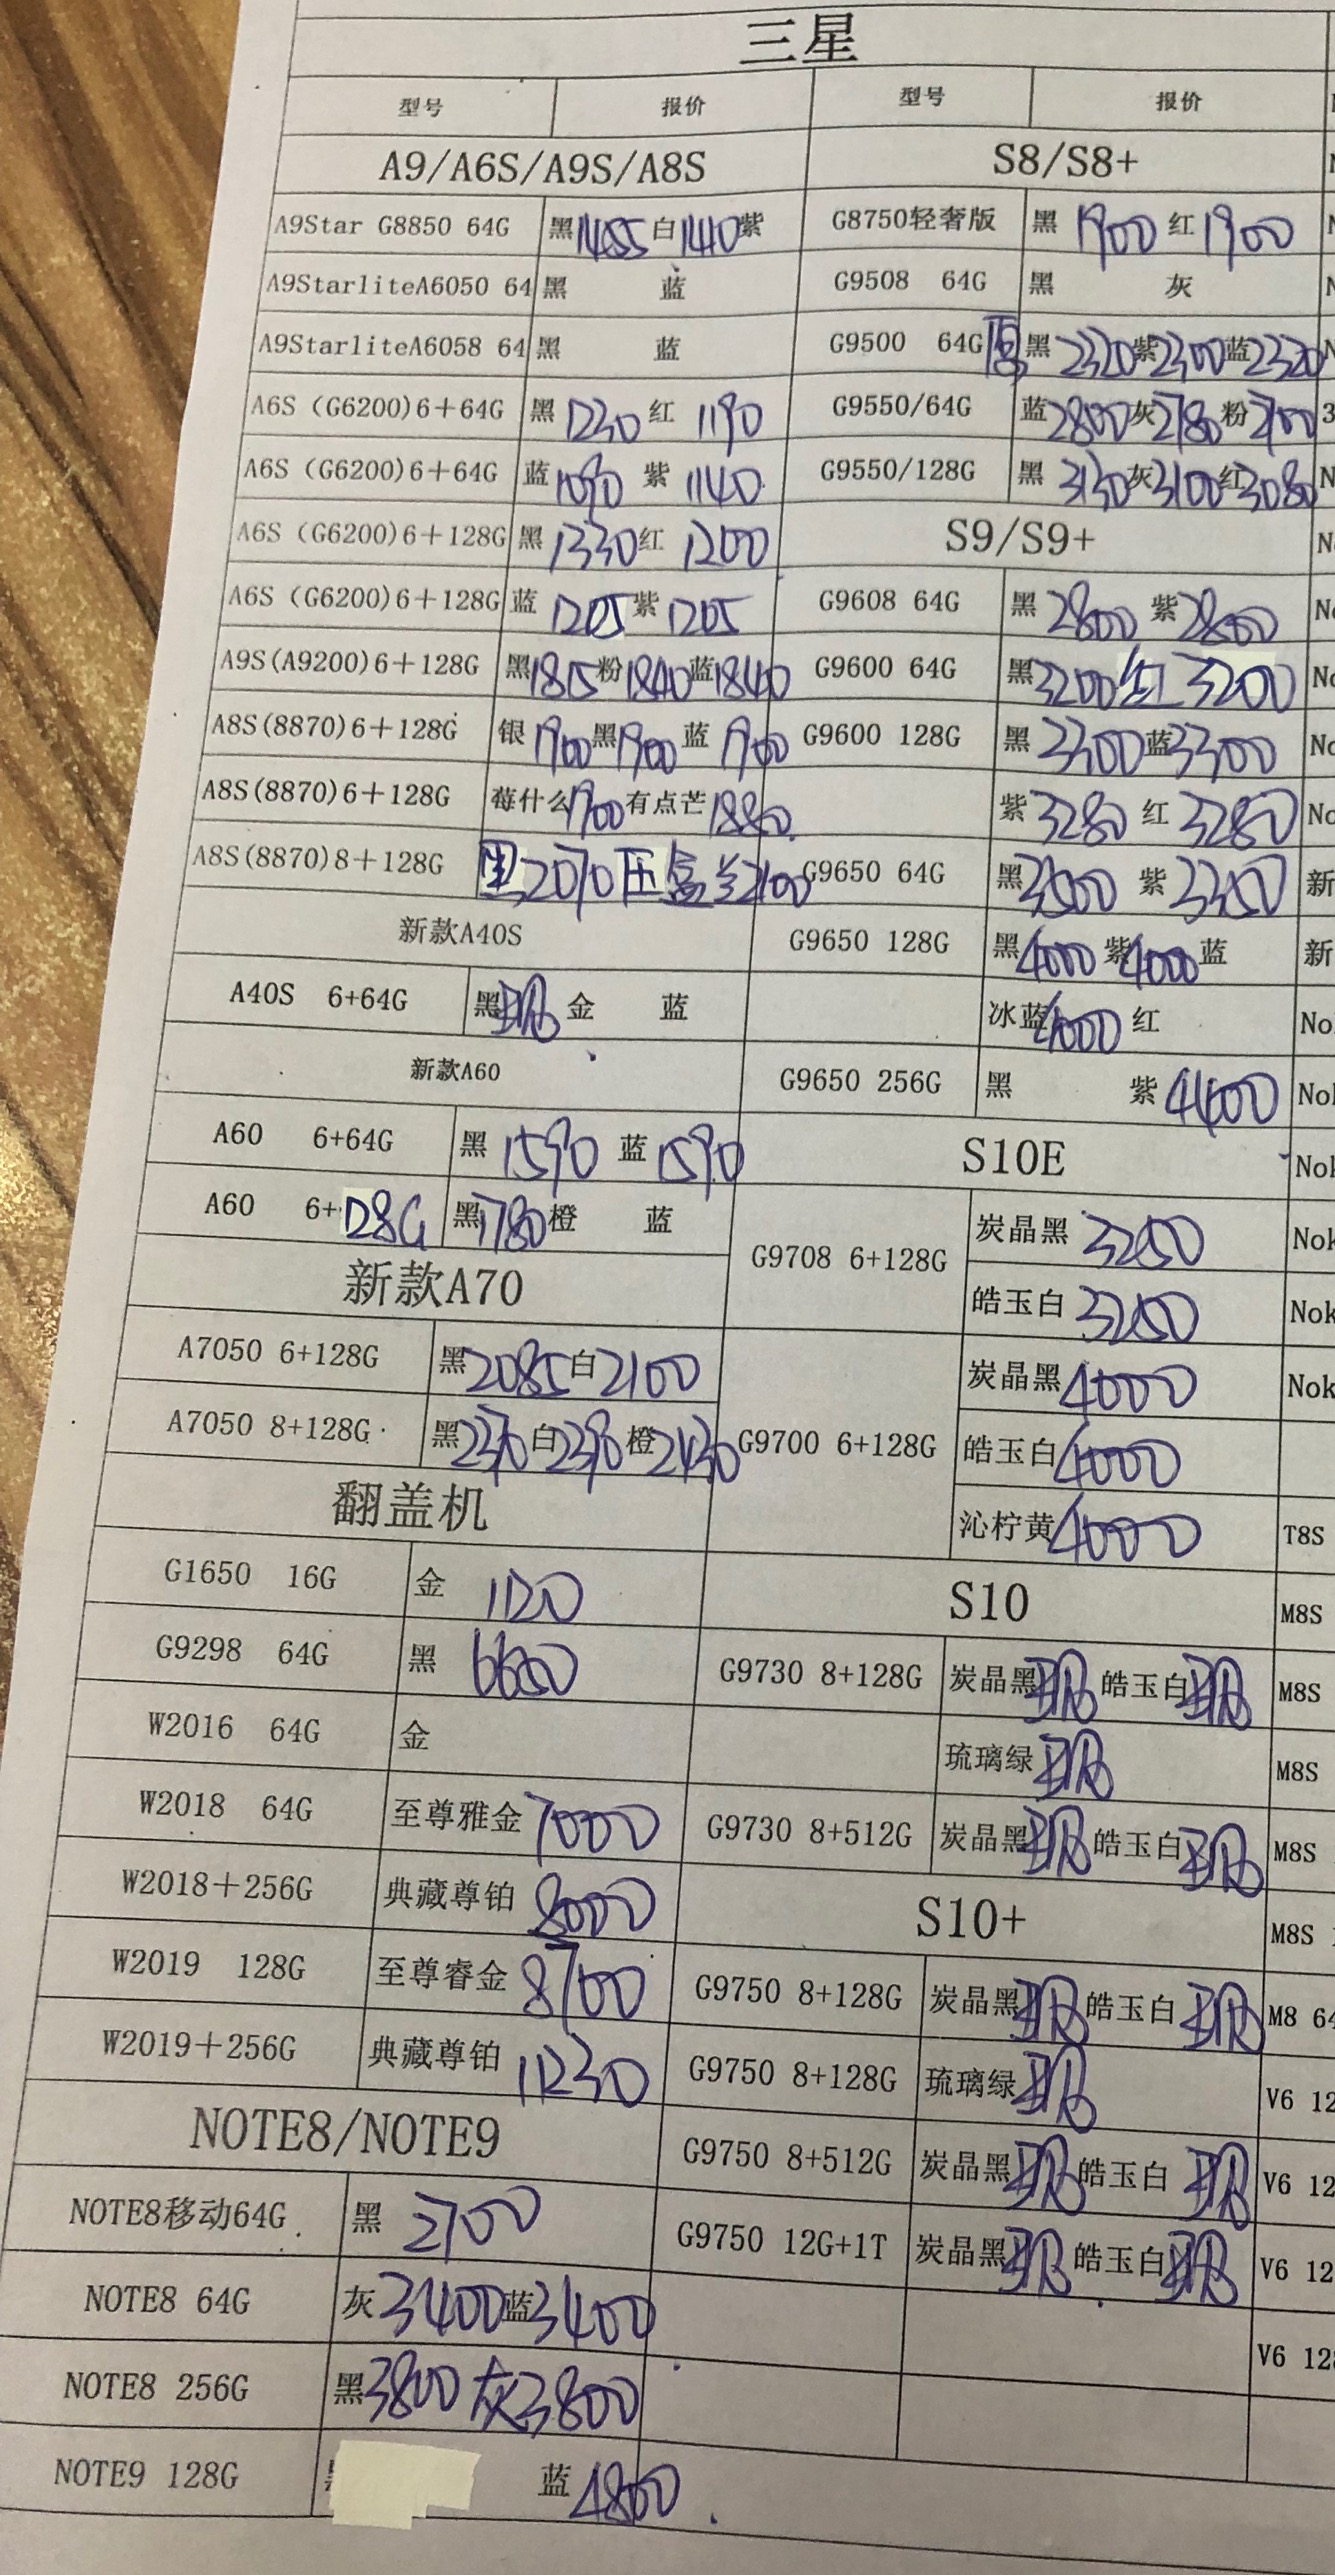 三星
型号 报价 型号 报价
A9/A6S/A9S/A8S S8/S8+
A9Star G8850 64G 黑1455 白1410 紫 G8750轻奢版 黑 1900 红 1900
A9StarliteA6050 64 黑 蓝 G9508 64G 黑 灰
A9StarliteA6058 64 黑 蓝 G9500 64G 黑 2320 紫2300 蓝2320
A6S (G6200)6+64G 黑 1230 红 1190 G9550/64G 蓝2800 灰2780 粉2700
A6S (G6200)6+64G 蓝 1090 紫 1140 G9550/128G 黑 3130 灰3100 红3080
A6S (G6200)6+128G 黑 1330 红 1200 S9/S9+
A6S (G6200)6+128G 蓝 1205 紫 1205 G9608 64G 黑 2800 紫 2800
A9S(A9200)6+128G 黑1815 粉1840 蓝1840 G9600 64G 黑3200 红 3200
A8S(8870)6+128G 银 1900 黑1900 蓝 1900 G9600 128G 黑 3300 蓝3300
A8S(8870)6+128G 莓什么1900 有点芒1880 紫 3280 红 3280
A8S(8870)8+128G 黑2070 压盒 兰2100 G9650 64G 黑3500 紫 3350
新款A40S G9650 128G 黑4000 紫4000 蓝
A40S 6+64G 黑现 金 蓝 冰蓝4000 红
新款A60 G9650 256G 黑 紫 4400
A60 6+64G 黑 1590 蓝 1590 S10E
A60 6+128G 黑1780 橙 蓝 G9708 6+128G 炭晶黑 3250
新款A70 皓玉白 3250
A7050 6+128G 黑2085 白2100 G9700 6+128G 炭晶黑4000
A7050 8+128G 黑2370 白2390 橙2430 皓玉白4000
翻盖机 沁柠黄4000
G1650 16G 金 1120 S10
G9298 64G 黑 6650 G9730 8+128G 炭晶黑现 皓玉白现
W2016 64G 金 琉璃绿现
W2018 64G 至尊雅金 7000 G9730 8+512G 炭晶黑现 皓玉白现
W2018+256G 典藏尊铂 8000 S10+
W2019 128G 至尊睿金 8700 G9750 8+128G 炭晶黑现 皓玉白现 M8 64
W2019+256G 典藏尊铂 11230 G9750 8+128G 琉璃绿现 V6 12
NOTE8/NOTE9 G9750 8+512G 炭晶黑现 皓玉白 现 V6 12
NOTE8移动64G 黑 2700 G9750 12G+1T 炭晶黑现 皓玉白现 V6 12
NOTE8 64G 灰3400 蓝3400 V6 12
NOTE8 256G 黑3800 灰3800
NOTE9 128G 蓝4800